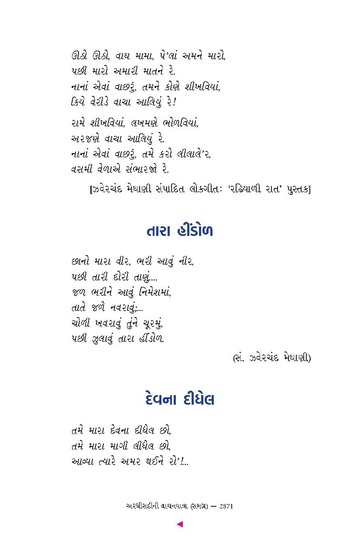 ઊઠો ઊઠો, વાઘ મામા, પે'લાં અમને મારો,
પછી મારો અમારી માતને રે.
નાનાં એવાં વાછરું, તમને કોણે શીખવિયાં,
કિયે વેરીડે વાચા આલિયું રે!
રામે શીખવિયાં, લખમણે ભોળવિયાં,
અરજણે વાચા આલિયું રે.
નાનાં એવાં વાછરું, તમે કરો લીલાલે'ર,
વસમી વેળાએ સંભારજો રે.
[ઝવેરચંદ મેઘાણી સંપાદિત લોકગીતઃ 'રઢિયાળી રાત' પુસ્તક]
તારા હીંડોળ
છાનો મારા વીર, ભરી આવું નીર,
પછી તારી દોરી તાણું....
જળ ભરીને આવું નિમેશમાં,
તાતે જળે નવરાવું;...
ચોળી ખવરાવું તુંને ચૂરમું,
પછી ઝુલાવું તારા હીંડોળ.
(સં. ઝવેરચંદ મેઘાણી)
દેવના દીધેલ
તમે મારા દેવના દીધેલ છો,
તમે મારા માગી લીધેલ છો,
આવ્યા ત્યારે અમર થઈને રો'!...
અરધીસદીની વાચનયાત્રા (સમગ્ર) — 2871